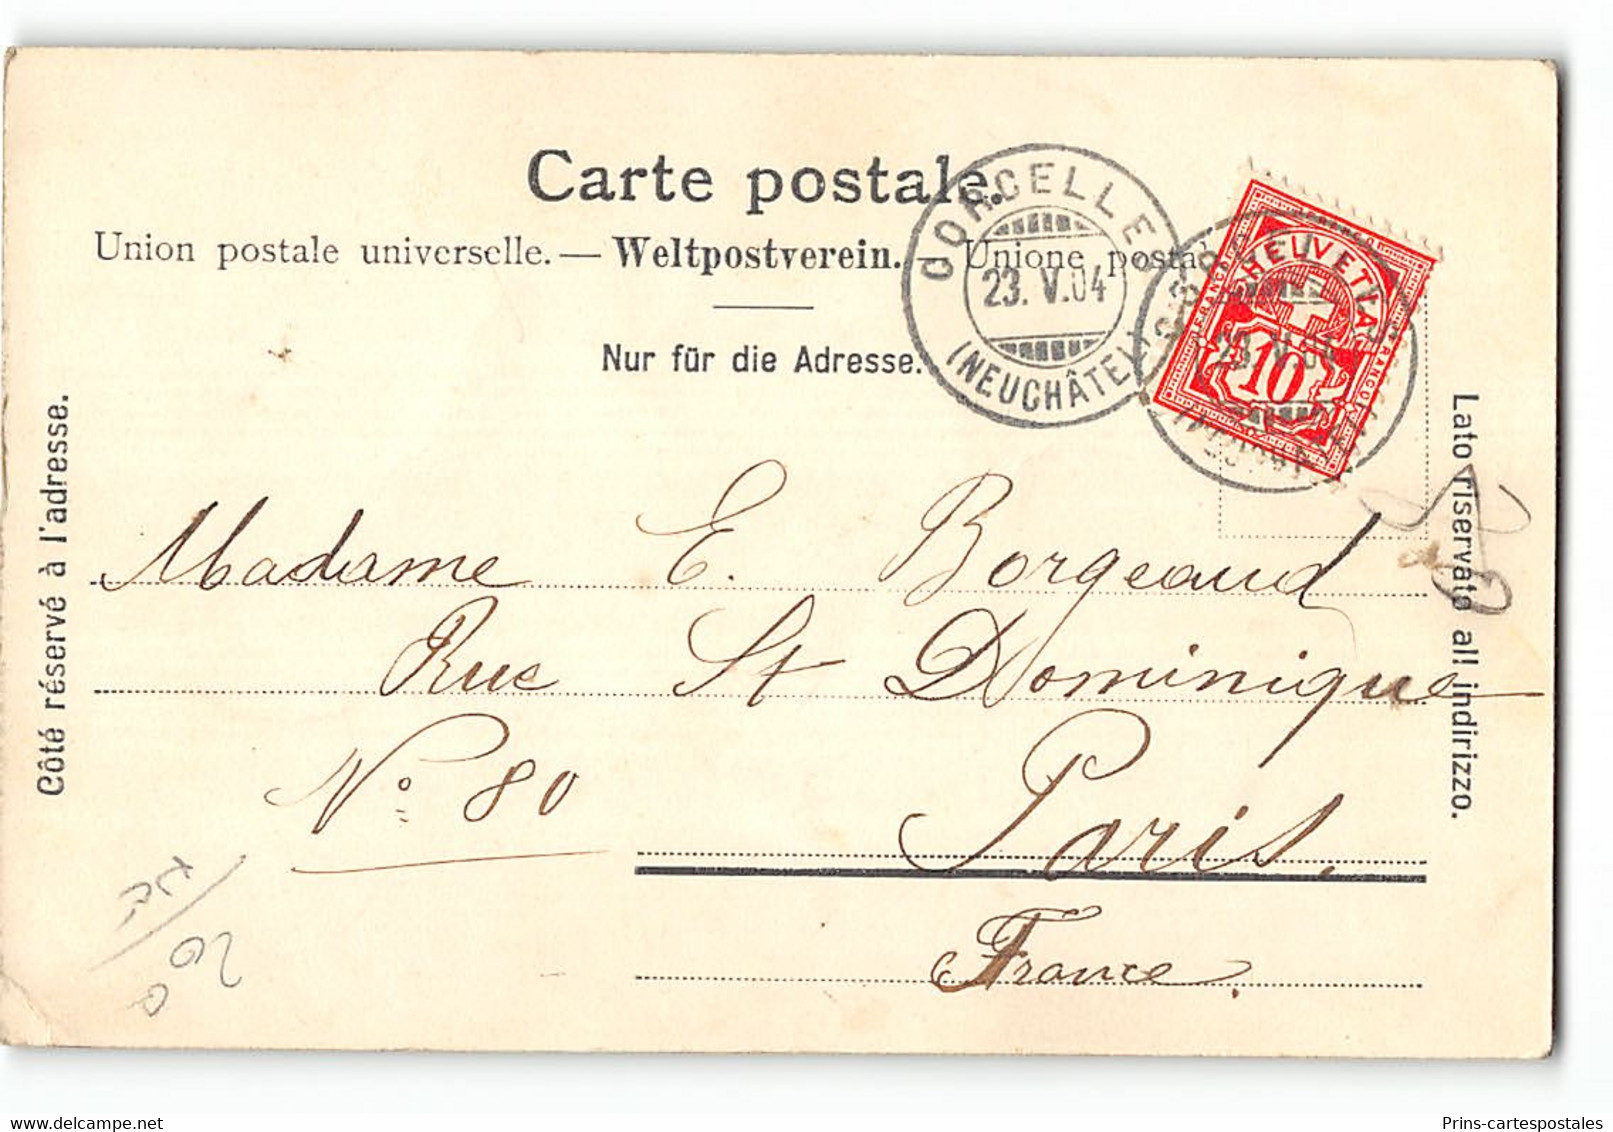 Carte postale.
Union postale universelle. — Weltpostverein. — Unione postale
Nur für die Adresse.
CORCELLES
23. V. 04
(NEUCHÂTEL)
HELVETIA
FRANCO FRANCO
10
23. V. 04
Côté réservé à l'adresse.
Lato riservato all indirizzo.
Madame E. Borgeaud
Rue St Dominique
No 80
Paris.
France.
200
Prins-cartespostales